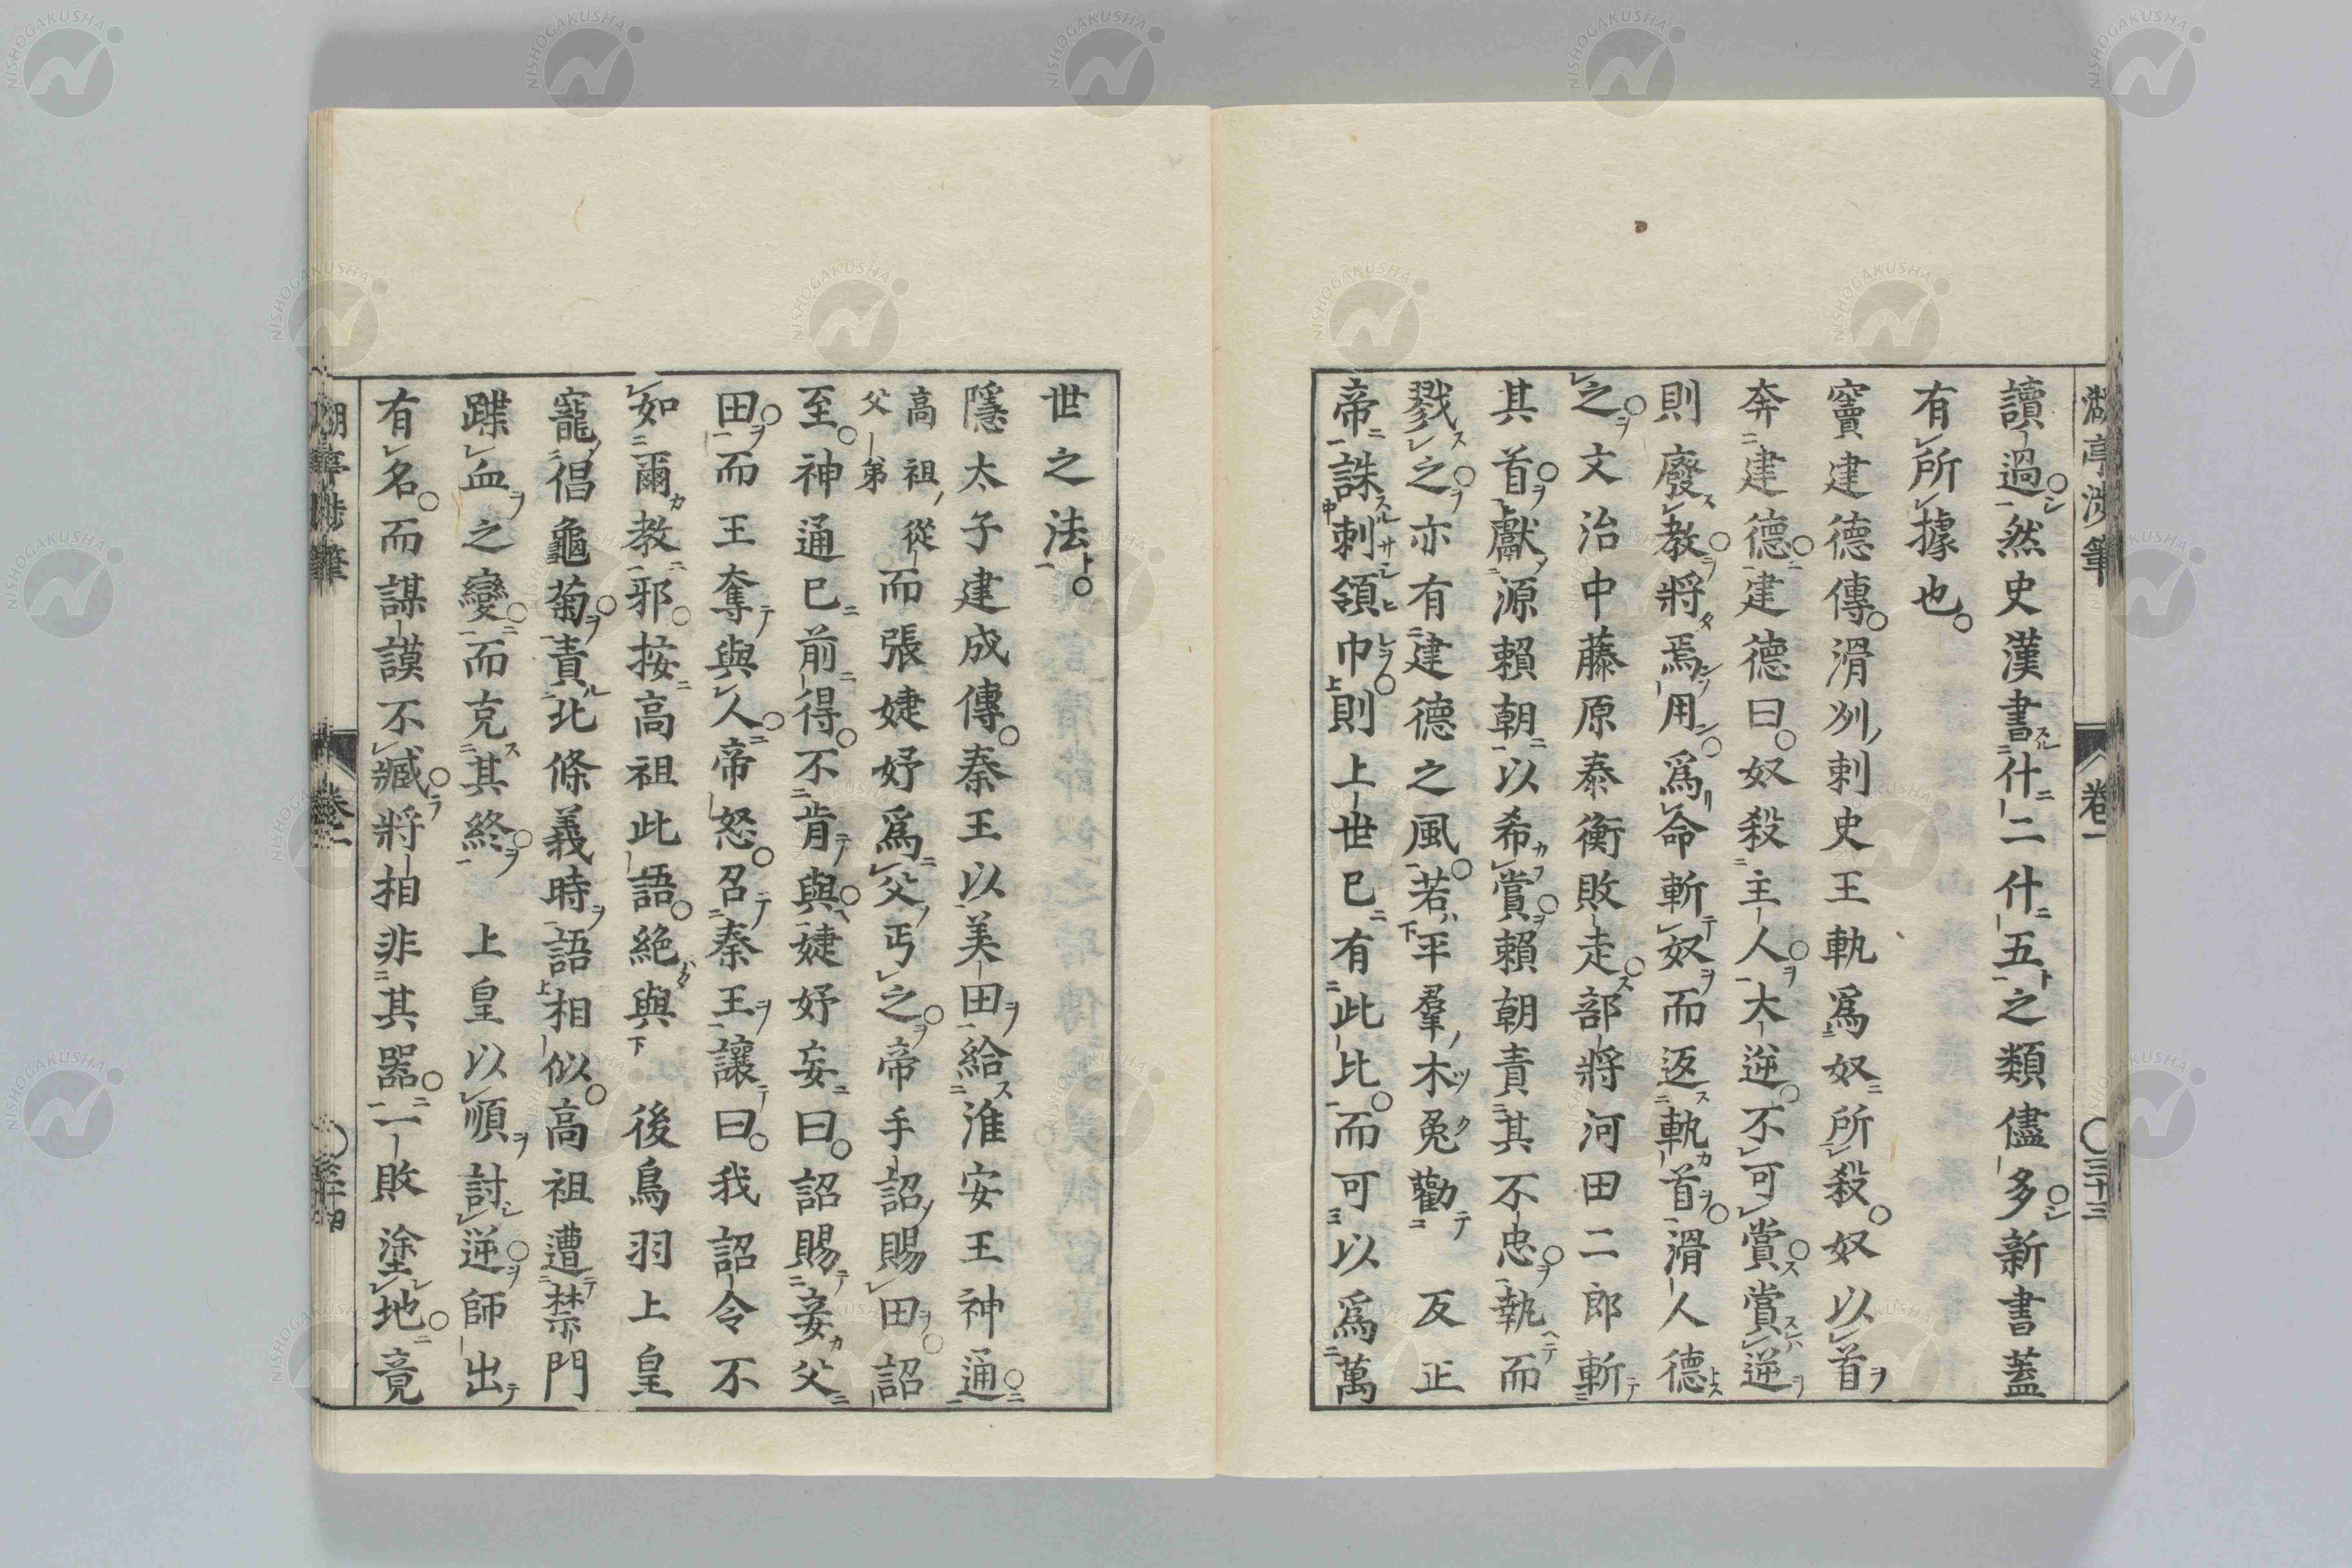 湖亭渉筆
卷一
〇三十三
讀過然史漢書什二什五之類儘多新書蓋
有所據也
竇建德傳滑州刺史王軌爲奴所殺奴以首
奔建德建德曰奴殺主人大逆不可賞賞逆
則廢教將焉用爲命斬奴而返軌首滑人德
之文治中藤原泰衡敗走部將河田二郎斬
其首獻源賴朝以希賞賴朝責其不忠執而
戮之亦有建德之風若平羣木菟勸 反正
帝誅刺領巾則上世已有此比而可以爲萬
世之法
隱太子建成傳秦王以美田給淮安王神通
高祖從
父弟
而張婕妤爲父丐之帝手詔賜田詔
至神通已前得不肯與婕妤妄曰詔賜妾父
田而王奪與人帝怒召秦王讓曰我詔令不
如爾教邪按高祖此語絕與 後鳥羽上皇
寵倡龜菊責北條義時語相似高祖遭禁門
蹀血之變而克其終 上皇以順討逆師出
有名而謀謨不臧將相非其器一敗塗地竟
湖亭渉筆
卷一
〇三十四
NISHOGAKUSHA